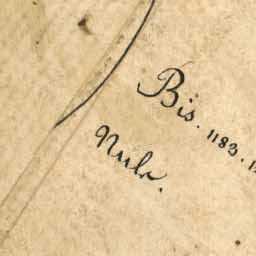 Bis. 1183. 1
Nulr.